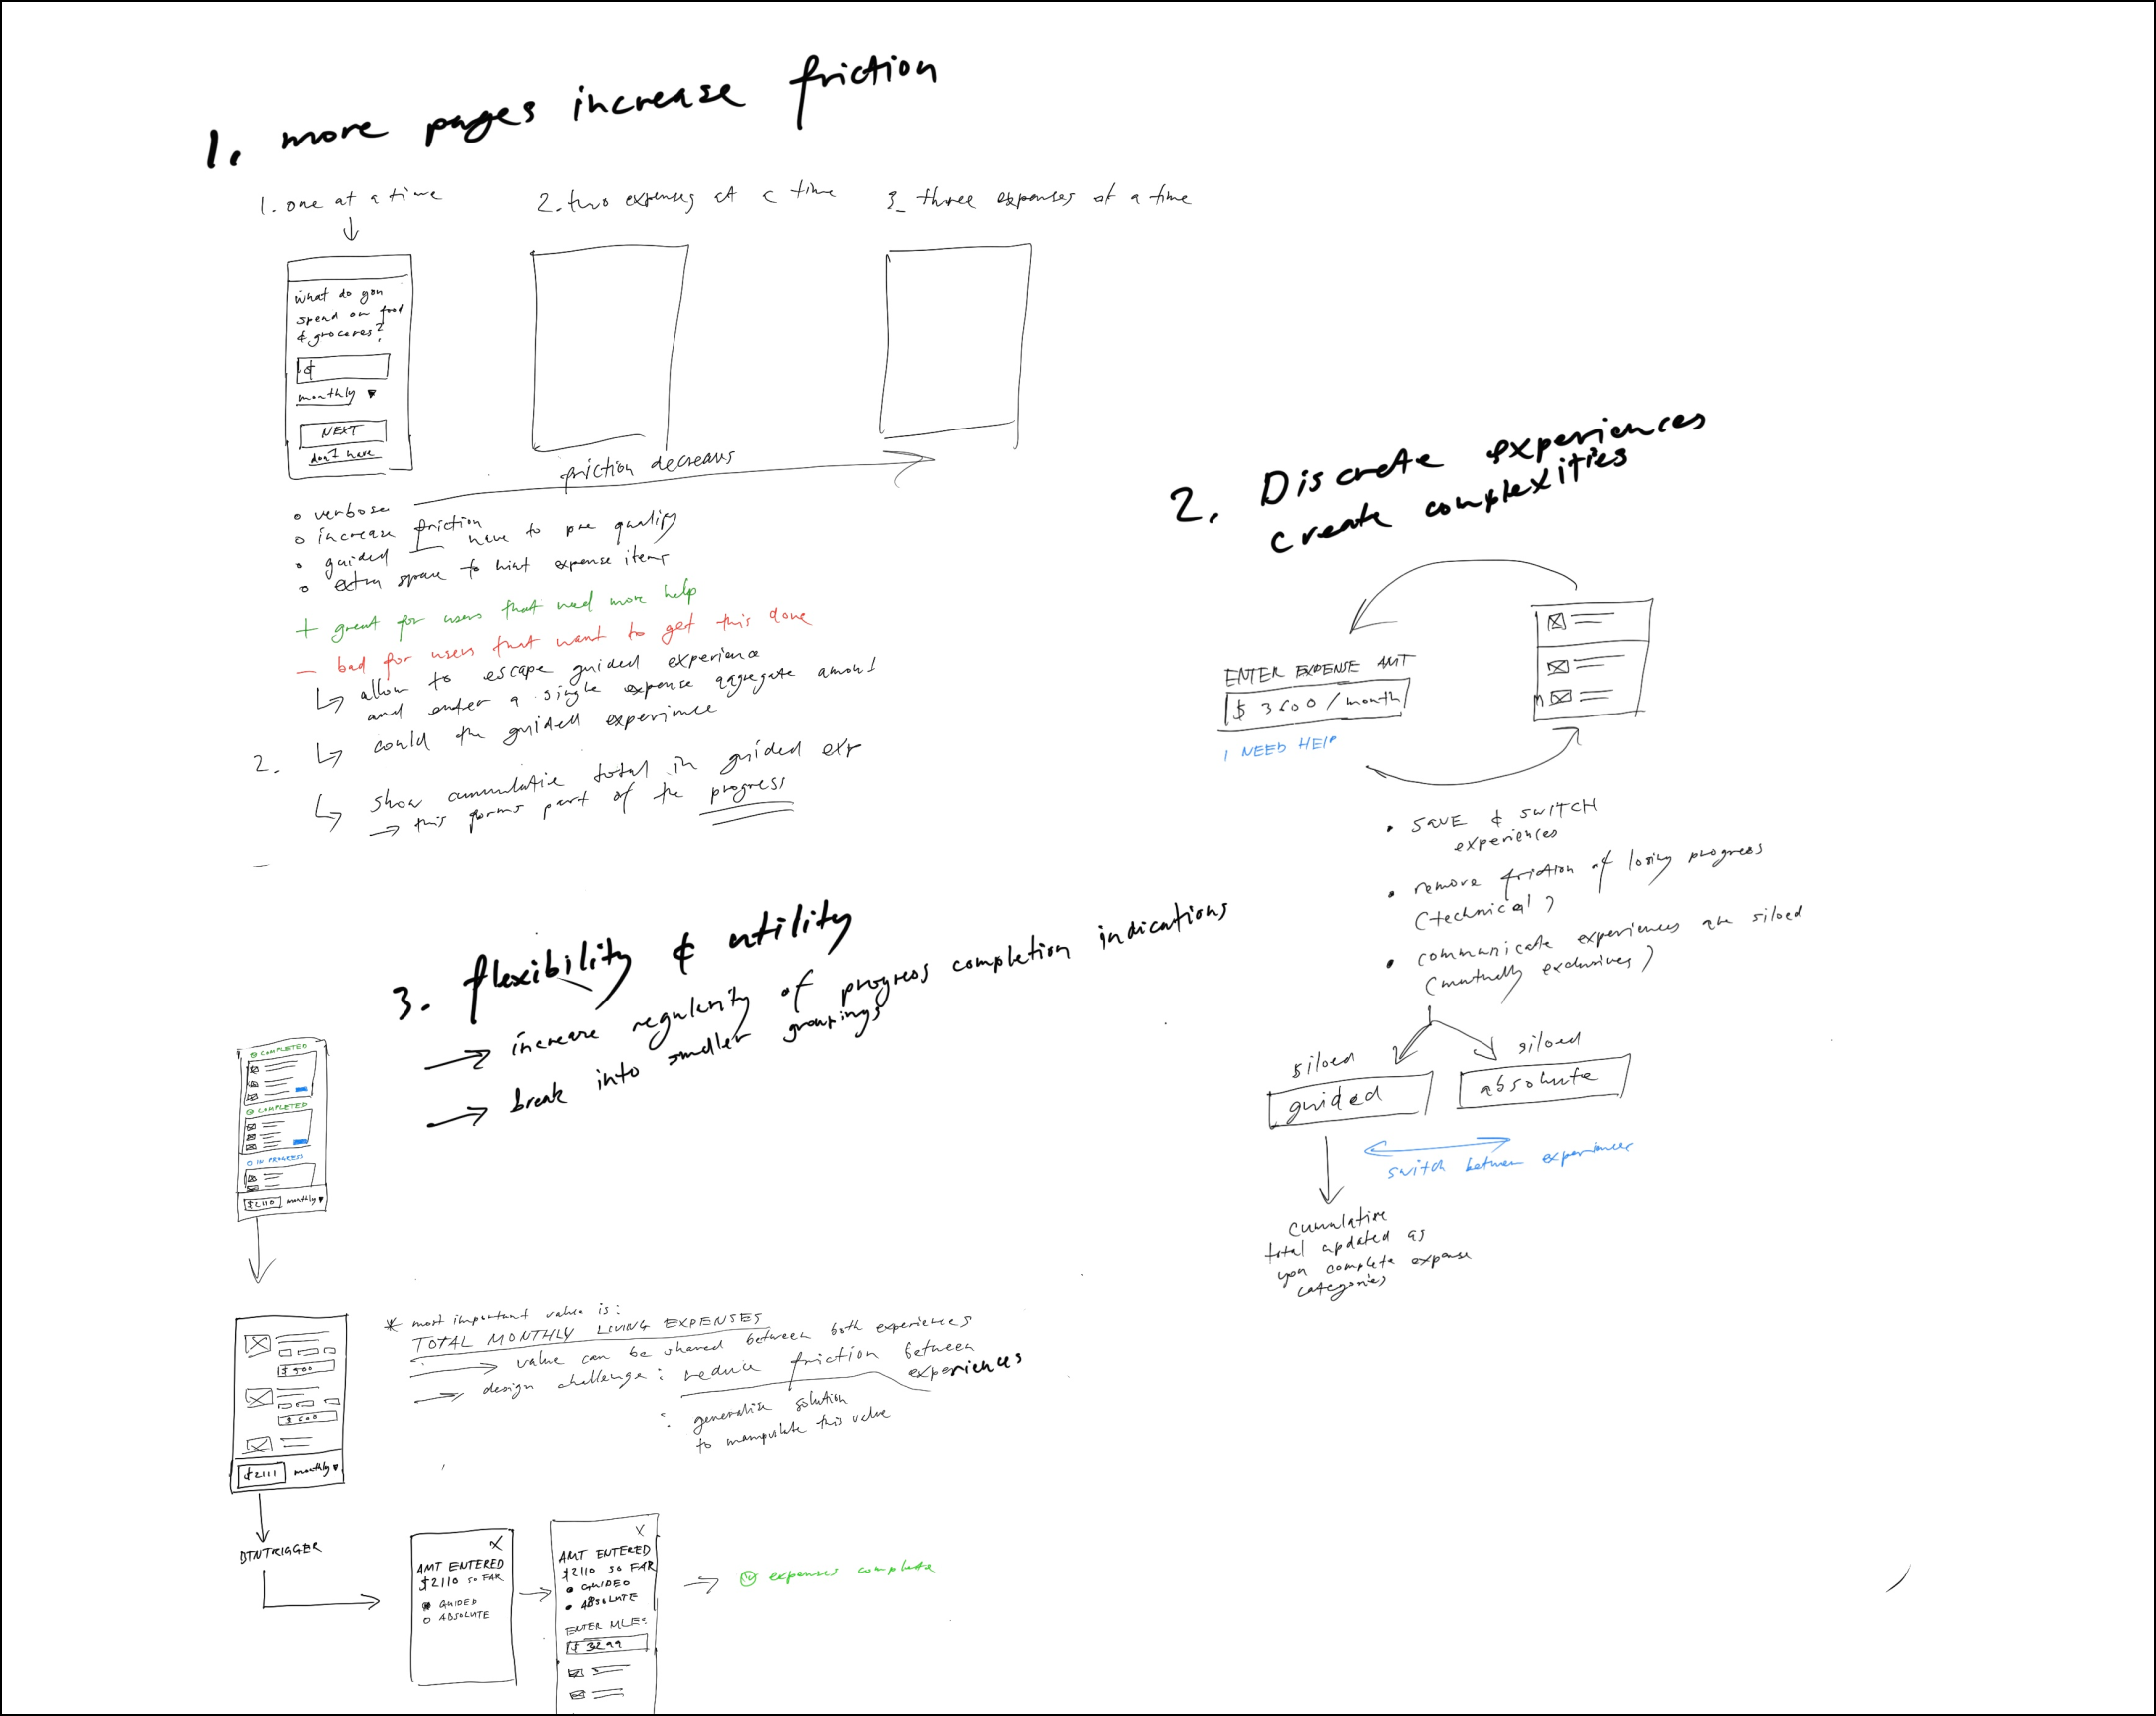 1. more pages increase friction
1. one at a time
2. two expenses at a time
3_ three expenses at a time
what do you
spend on food
& groceres?
$
monthly ▼
NEXT
don't have
friction decreases
• verbose
• increase friction
• guided have to pre qualify
• extra space to hint expense items
+ great for users that need more help
– bad for users that want to get this done
↳ allow to escape guided experience
and enter a single expense aggregate amount
2. ↳ could the guided experience
↳ show cumulative total in guided exp
→ this forms part of the progress
2. Discrete experiences
create complexities
ENTER EXPENSE AMT
$ 3600 / month
I NEED HELP
• SAVE & SWITCH
experiences
• remove friction of losing progress
(technical)
• communicate experiences are siloed
(mutually exclusives)
siloed
siloed
guided
absolute
switch between experiences
cumulative
total updated as
you complete expense
categories
3. flexibility & utility
→ increase regularity of progress completion indications
→ break into smaller groupings
COMPLETED
COMPLETED
IN PROGRESS
$2110 monthly ▼
* most important value is:
TOTAL MONTHLY LIVING EXPENSES
→ value can be shared between both experiences
→ design challenge: reduce friction between
experiences
: generalize solution
to manipulate this value
$ 500
$ 600
$2111 monthly ▼
BTNTRIGGER
X
AMT ENTERED
$2110 SO FAR
GUIDED
ABSOLUTE
X
AMT ENTERED
$2110 SO FAR
• GUIDED
• ABSOLUTE
ENTER MLE:
$ 3299
→ expenses complete